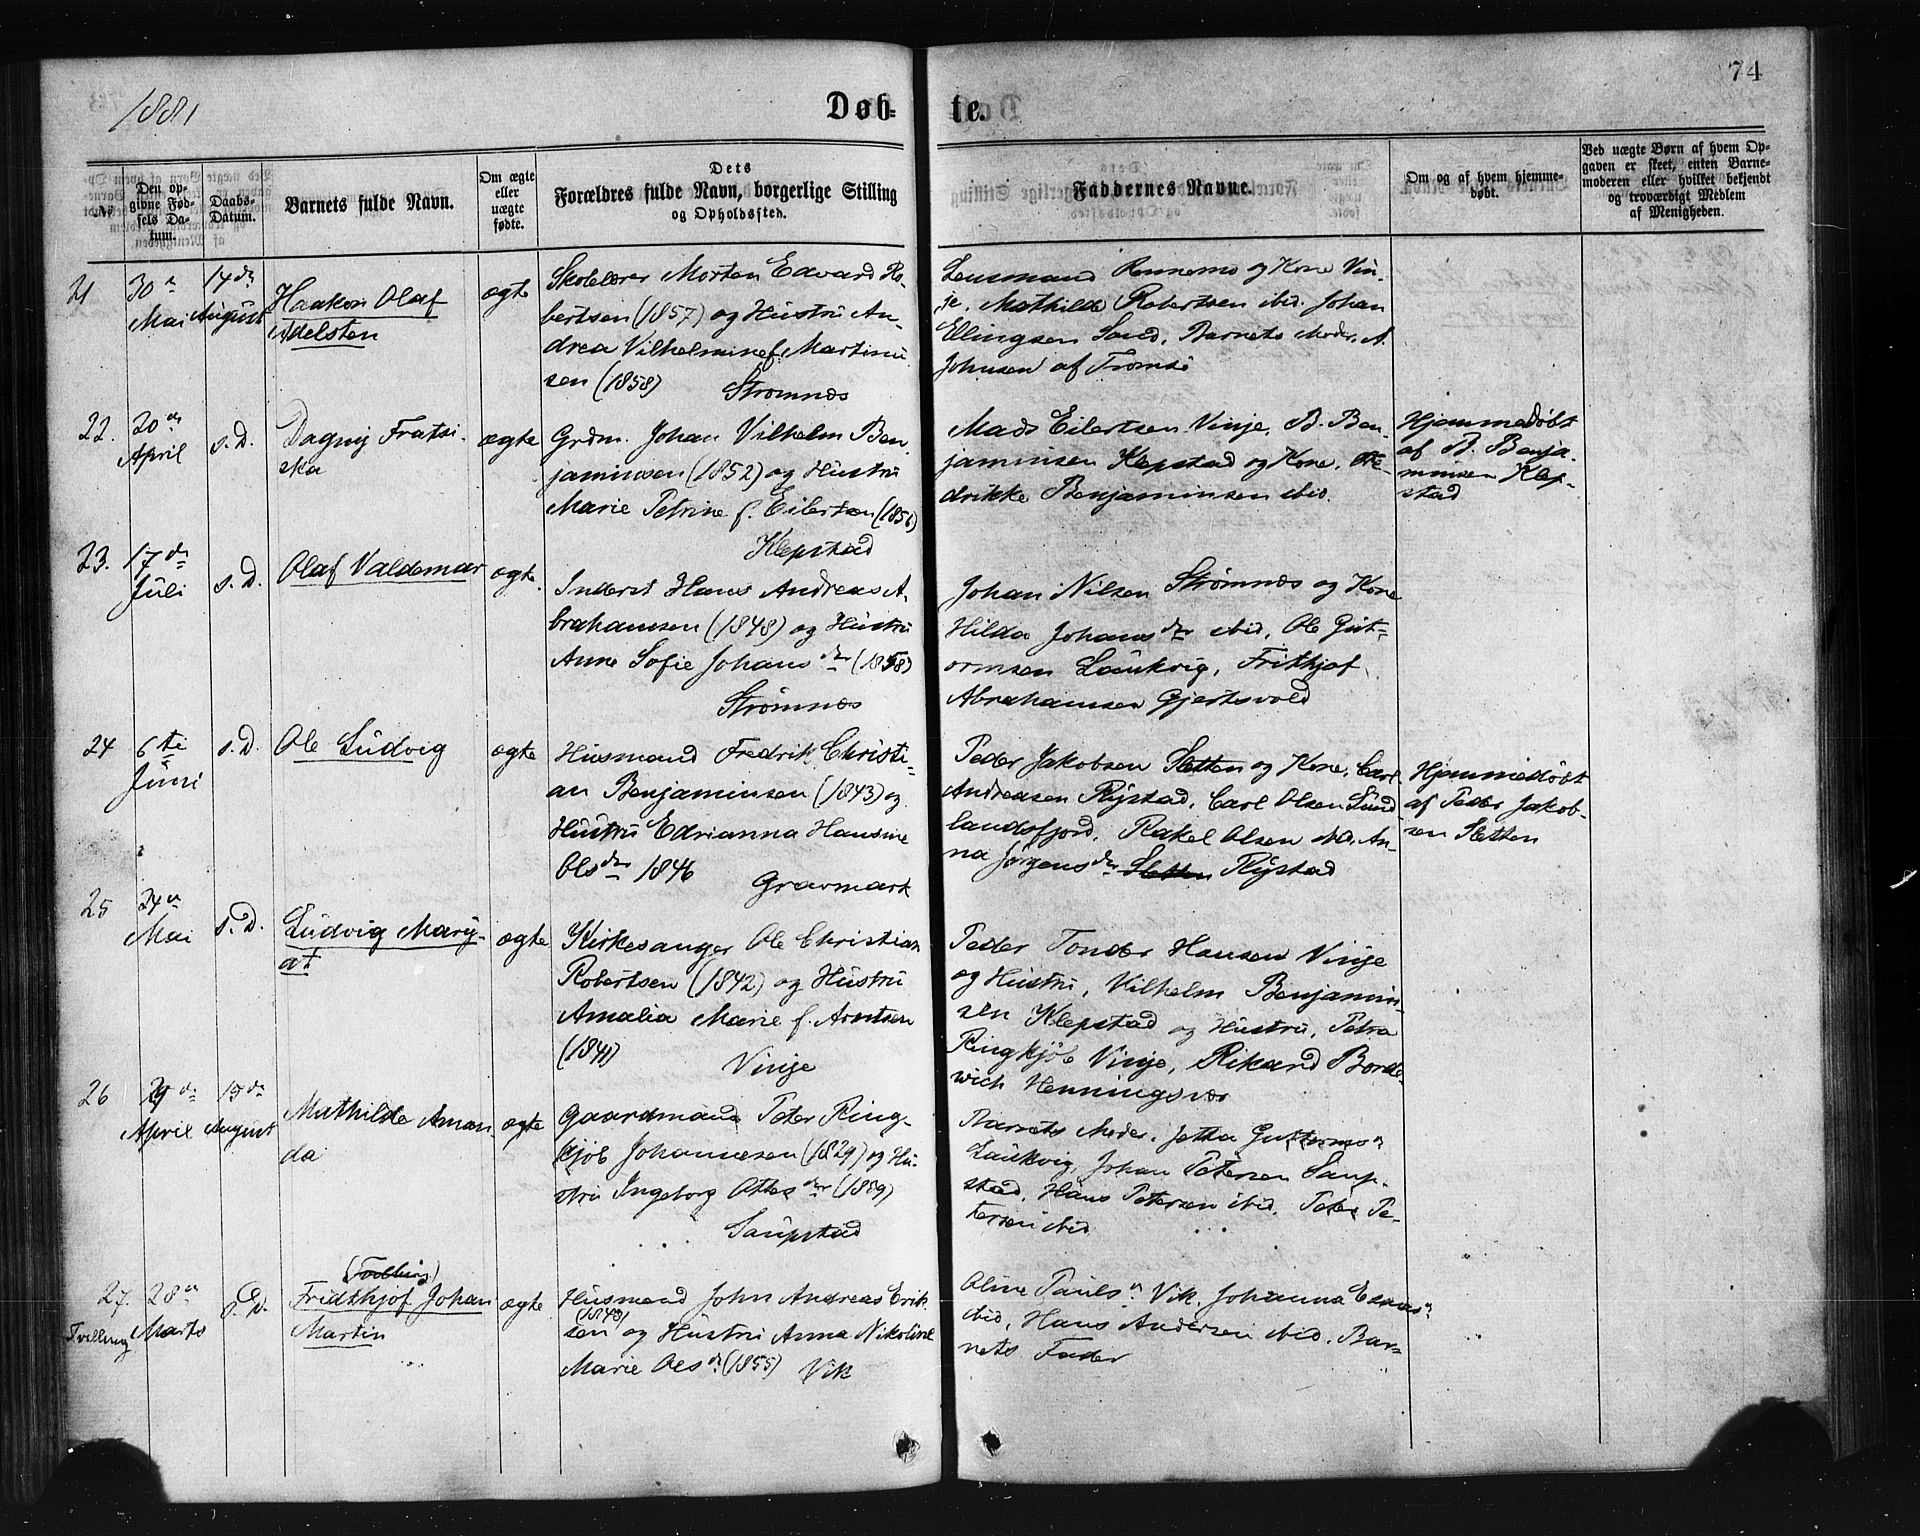 74
1881
Døb-
te.
№
Den op-
givne Fød-
sels Da-
tum.
Daabs-
Datum.
Barnets fulde Navn.
Om ægte
eller
uægte
fødte.
Dets
Forældres fulde Navn, borgerlige Stilling
og Opholdssted.
Faddernes Navne.
Om og af hvem hjemme-
døbt.
Ved uægte Børn af hvem Op-
gaven er skeet, enten Barne-
moderen eller hvilket bekjendt
og troværdigt Medlem
af Menigheden.
21
30te
Mai
14de
August
Haakon Olaf
Adelsten
ægte
Skolelærer Morten Edvard Ro-
bertsen (1857) og Hustru An-
drea Vilhelmine f. Martinu
sen (1858)
Strømnæs
Lensmand Rennemo og Kone Vin-
je, Mathilde Robertsen ibid. Johan
Ellingsen Sand, Barnets Moder, A.
Johnsen af Tromsø
22.
20de
April
s. D.
Dagny Fratsi-
ska
ægte
Grdm. Johan Vilhelm Ben-
jaminsen (1852) og Hustru
Marie Petrine f. Eilertsen (1856)
Klepstad
Mads Eilertsen Vinje, B. Ben-
jaminsen Klepstad og Kone, Fre-
drikke Benjaminsen ibid.
Hjemmedøbt
af B. Benja-
minsen Klep-
stad
23.
17de
Juli
s. D.
Olaf Valdemar
ægte.
Inderst Hans Andreas A-
brahamsen (1848) og Hustru
Anne Sofie Johansdtr (1858)
Strømnæs
Johan Nilsen Strømnæs og Kone
Hilda Johansdtr ibid, Ole Gut-
ormsen Laukvig, Frithjof
Abrahamsen Gjertsvold
24
6te
Juni
s. D.
Ole Ludvig
ægte
Husmand Fredrik Christi-
an Benjaminsen (1843) og
Hustru Edrianna Hansine
Olsdtr 1846
Gravmark
Peder Jakobsen Sletten og Kone, Carl
Andreasen Rystad, Carl Olsen Sund
landsfjord, Rakel Olsen ibid, An-
na Jørgensdtr Sletten Rystad
Hjemmedøbt
af Peder Jakob-
sen Sletten
25
24de
Mai
s. D.
Ludvig Mary-
at
ægte
Kirkesanger Ole Christian
Robertsen (1842) og Hustru
Amalia Marie f. Arntsen
(1841)
Vinje
Peder Tonder Hansen Vinje
og Hustru, Vilhelm Benjamin
sen Klepstad og Hustru, Petra
Ringkjøb Vinje, Rikard Borde-
wich Henningsvær
26
29de
April
15de
August
Mathilde Aman-
da
ægte
Gaardmand Peter Ring-
kjøb Johannesen (1829) og Hu-
stru Ingeborg Ottesdtr (1839)
Saupstad
Barnets Moder, Jetha Guttormsd
Laukvig, Johan Petersen Saup-
stad, Hans Petersen ibid. Peter Pe-
tersen ibid.
27.
Tvilling
28de
Marts
s. D.
(Tvilling)
Fridthjof Johan
Martin
ægte
Husmand John Andreas Erik
(1848)
sen og Hustru Anna Nikoline
Marie Olsd (1855) Vik
Oline Paulsd Vik, Johanna Esaasd
ibid, Hans Andersen ibid. Bar-
nets Fader